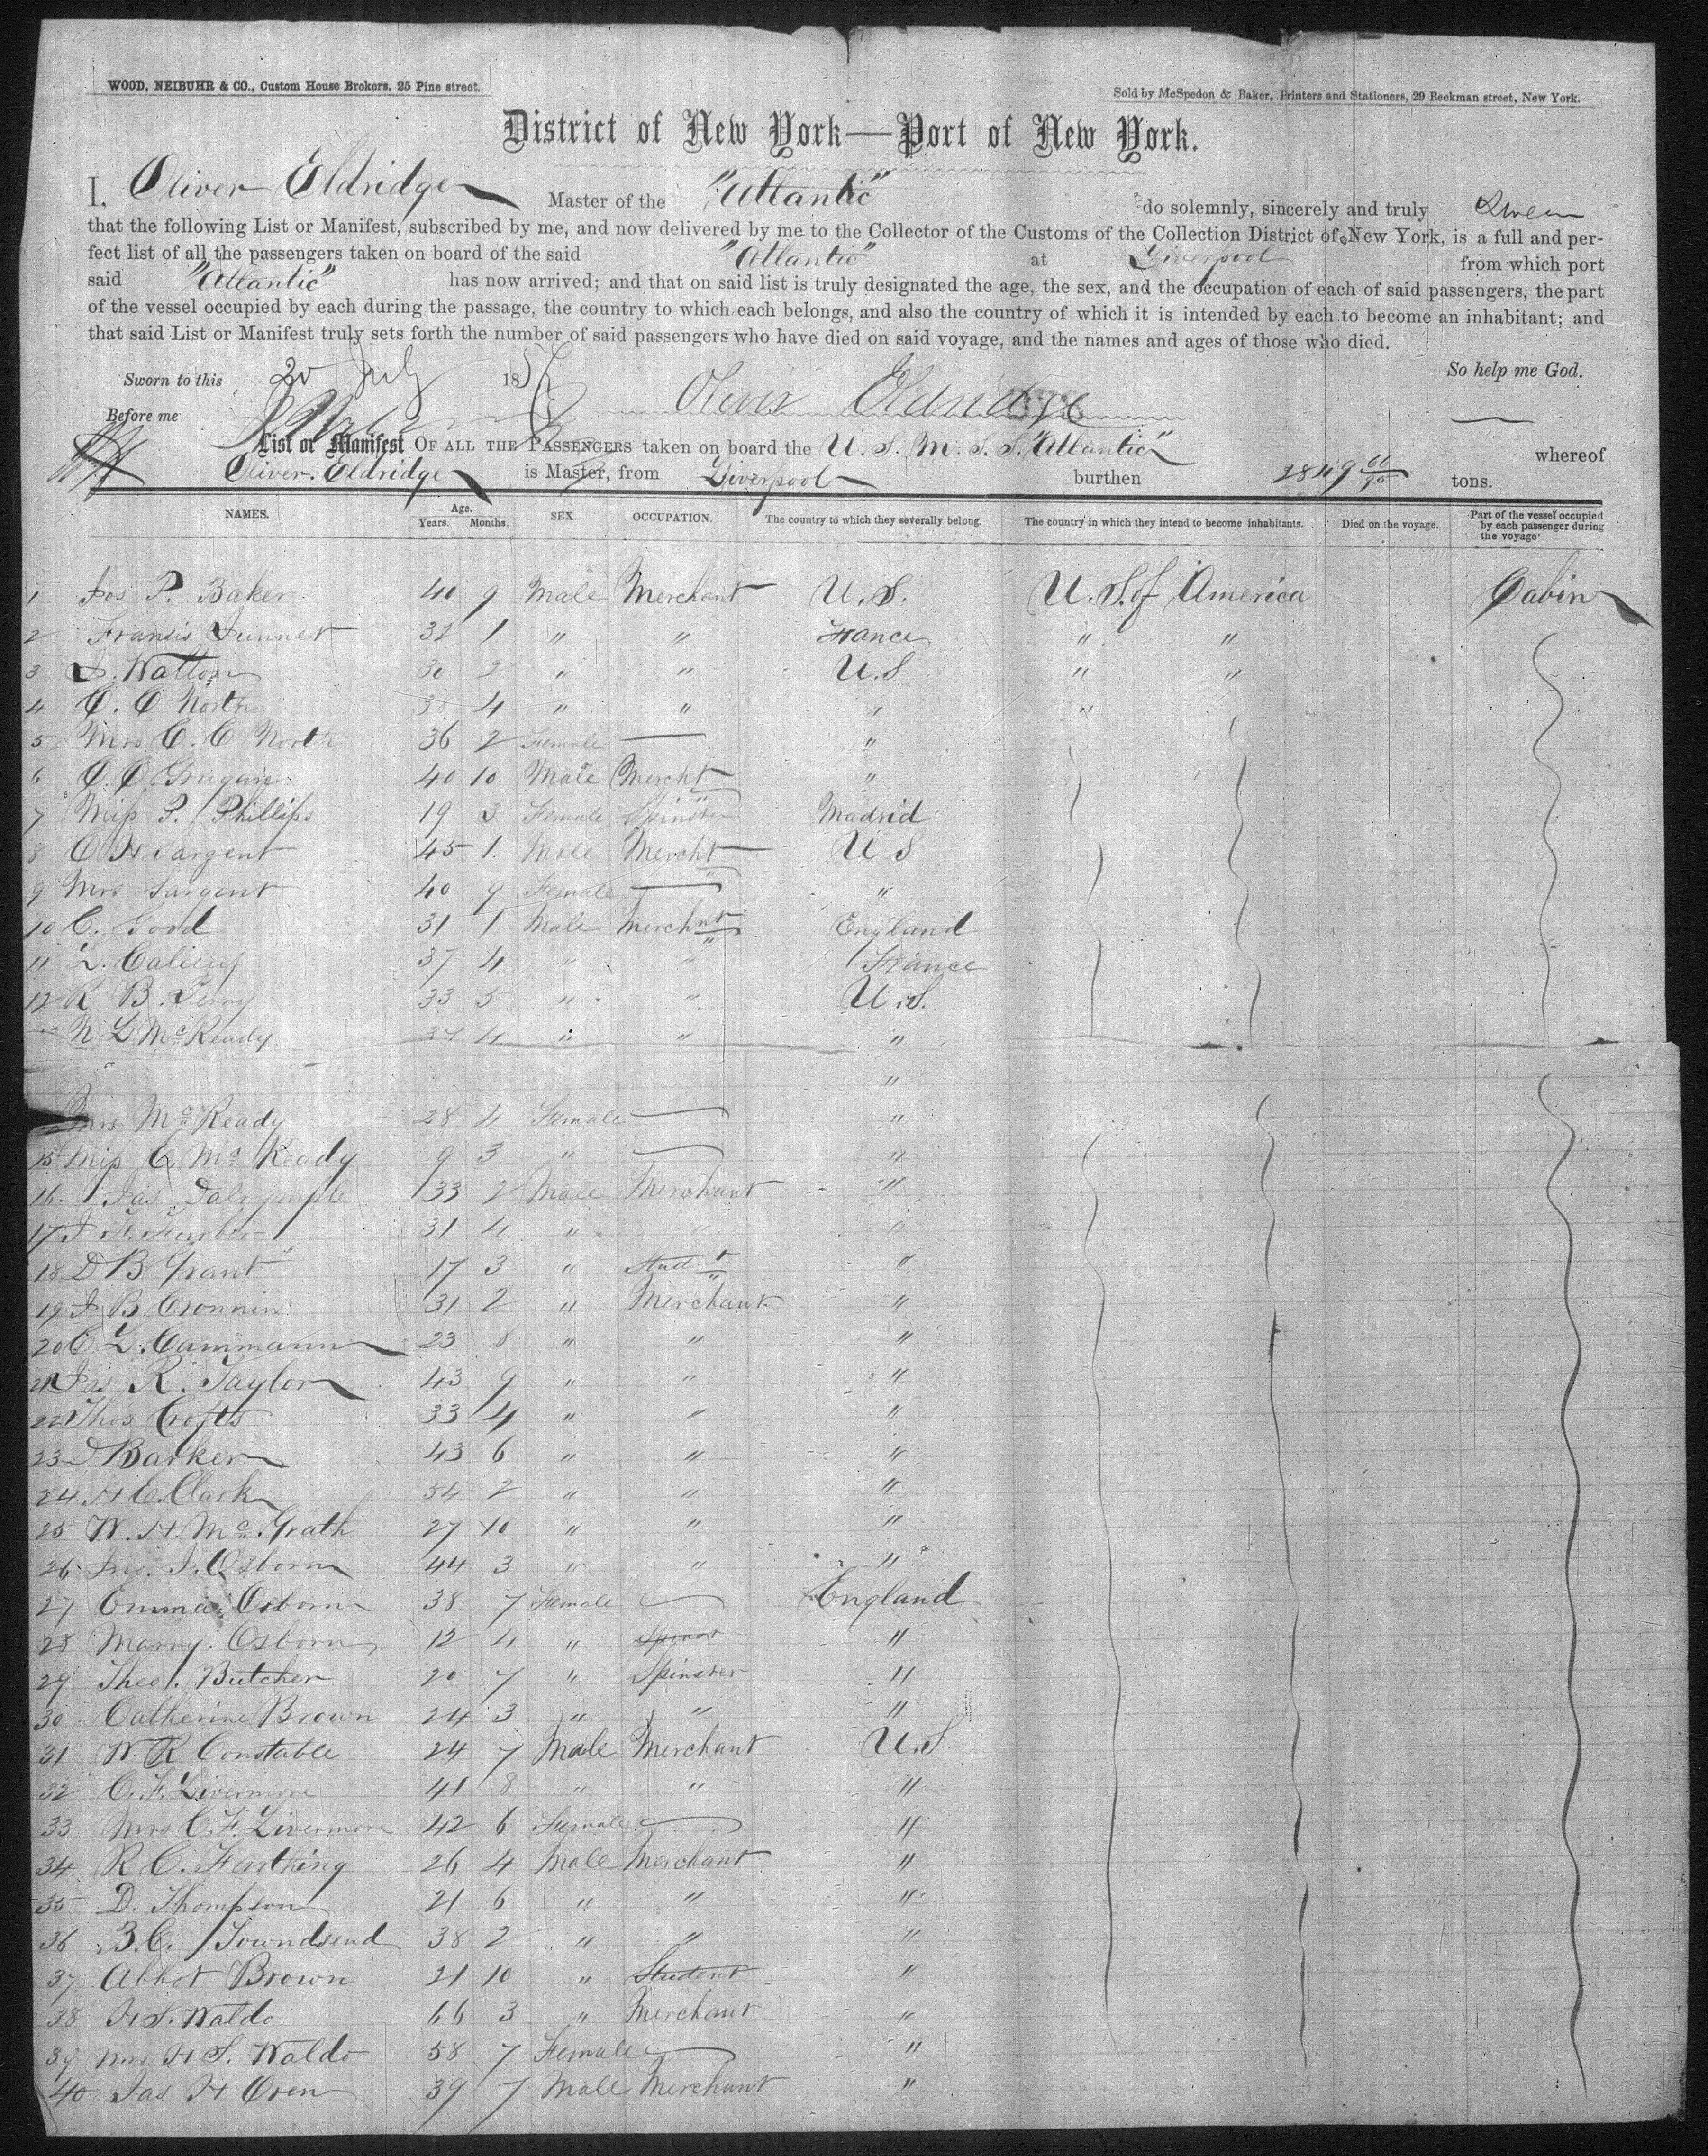 WOOD, NEIBUHR & CO., Custom House Brokers, 25 Pine street.
Sold by McSpedon & Baker, Printers and Stationers, 29 Beekman street, New York.
District of New York—Port of New York.
I, Oliver Eldridge Master of the "Atlantic" do solemnly, sincerely and truly Swear
that the following List or Manifest, subscribed by me, and now delivered by me to the Collector of the Customs of the Collection District of New York, is a full and per-
fect list of all the passengers taken on board of the said "Atlantic" at Liverpool from which port
said "Atlantic" has now arrived; and that on said list is truly designated the age, the sex, and the occupation of each of said passengers, the part
of the vessel occupied by each during the passage, the country to which each belongs, and also the country of which it is intended by each to become an inhabitant; and
that said List or Manifest truly sets forth the number of said passengers who have died on said voyage, and the names and ages of those who died.
Sworn to this 20 July 1856 So help me God.
Before me Oliver Eldridge
List or Manifest OF ALL THE PASSENGERS taken on board the U. S. M. S. S. "Atlantic" whereof
Oliver Eldridge is Master, from Liverpool burthen 2849 tons.
NAMES. Age. Years. Months. SEX. OCCUPATION. The country to which they severally belong. The country in which they intend to become inhabitants. Died on the voyage. Part of the vessel occupied by each passenger during the voyage
1 Jos P. Baker 40 9 Male Merchant U.S. U.S. of America Cabin
2 Francis 32 1 " " France " "
3 J. Watton 30 2 " " U.S " "
4 C. C North 38 4 " " " "
5 Mrs C. C North 36 2 Female — "
6 40 10 Male Mercht "
7 Miss P. Phillips 19 3 Female Spinster Madrid
8 C H Sargent 45 1 Male Mercht U S
9 Mrs Sargent 40 9 Female — "
10 C. Good 31 1 Male Merchnt England
11 L. 37 4 " " France
12 R B. Perry 33 5 " " U.S.
N L McReady 34 4 " " "
"
Mrs McReady 28 4 Female — "
15 Miss C McReady 9 3 " — "
16. Jas Dalrymple 33 2 Male Merchant "
17 J F. Furber 31 4 " " "
18 D B Grant 17 3 " Studt "
19 J B Cronnin 31 2 " Merchant "
20 E L. Cammann 23 8 " " "
21 Jas R. Taylor 43 9 " " "
22 Thos Crofts 33 4 " " "
23 D Barker 43 6 " " "
24 H E. Clark 34 2 " " "
25 W. H. McGrath 27 10 " " "
26 Jno. J. Osborn 44 3 " " "
27 Emma Osborn 38 7 Female — England
28 Marry. Osborn 12 4 " "
29 Theo. Butcher 20 7 " Spinster "
30 Catherine Brown 24 3 " " "
31 W R Constable 24 7 Male Merchant U.S
32 C. F. Livermore 41 8 " " "
33 Mrs C. F. Livermore 42 6 Female — "
34 R C. Farthing 26 4 Male Merchant "
35 D. Thompson 21 6 " " "
36 B. C. Towndsend 38 2 " " "
37 Abbot Brown 21 10 " Student "
38 H S. Waldo 66 3 " Merchant "
39 Mrs H S. Waldo 58 7 Female — "
40 Jas H Oren 39 7 Male Merchant "